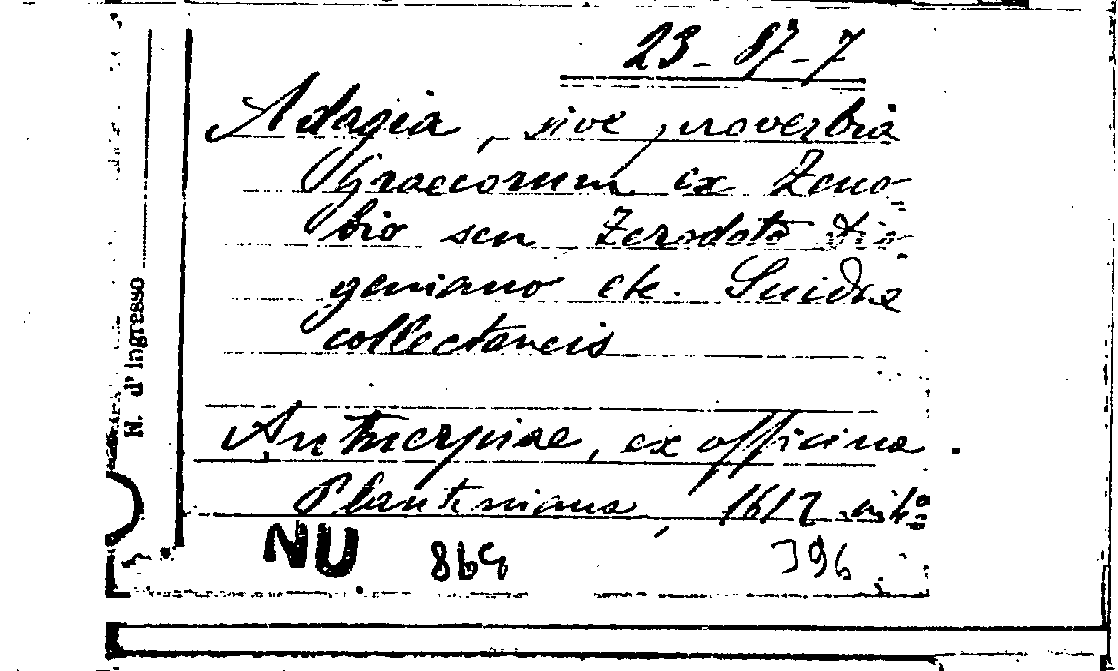 23-87-7
Adagia, sive proverbia
Graecorum ex Zeno-
bio seu Zerodoto Dio-
geniano etc. Suidae
collectaneis
Antuerpiae, ex officina
Plantiniana, 1612 in 4º
NU 869 396
N. d'Ingresso